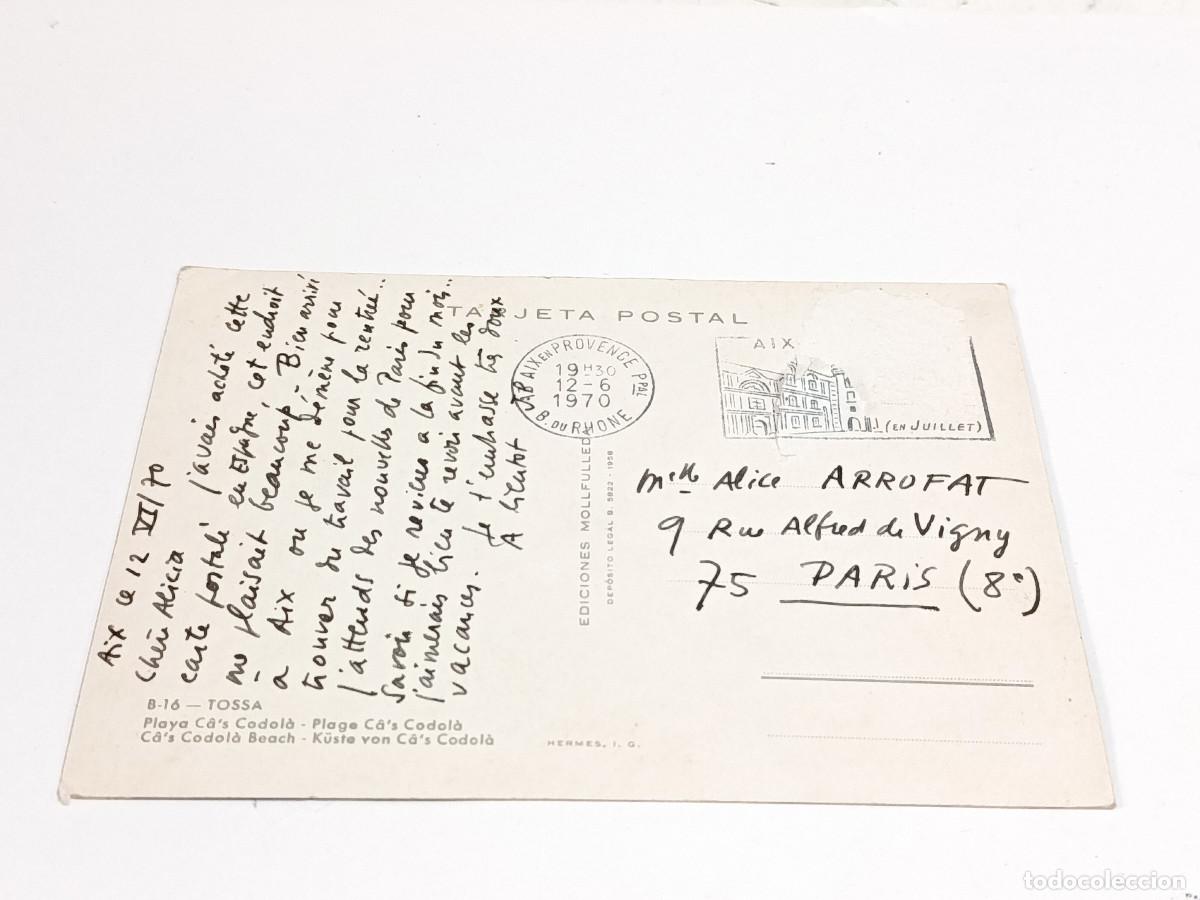 TARJETA POSTAL
Aix ce 12 VI/70
Chère Alicia
j'avais acheté cette
carte postale en Espagne, cet endroit
me plaisait beaucoup - Bien arrivé
à Aix ou je me démène pour
trouver du travail pour la rentrée..
j'attends des nouvelles de Paris pour
savoir si je reviens a la fin du mois..
j'aimerais bien te revoir avant les
vacances. Je t'embrasse très doux
A bientot
B-16 — TOSSA
Playa Câ's Codolà - Plage Câ's Codolà
Câ's Codolà Beach - Küste von Câ's Codolà
HERMES, I. G.
EDICIONES MOLLFULLEDA
DEPÓSITO LEGAL B. 5822 - 1958
AIX EN PROVENCE PPAL
19H30
12-6
1970
B. DU RHONE
AIX
(EN JUILLET)
Melle Alice ARROFAT
9 Rue Alfred de Vigny
75 PARIS (8°)
todocoleccion